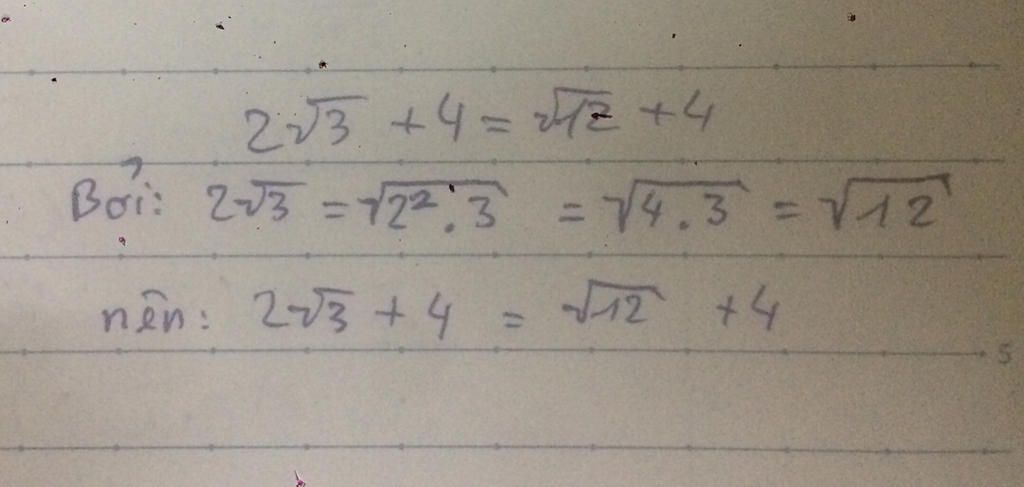 2√3 + 4 = √12 + 4
Bởi: 2√3 = √2² . 3 = √4 . 3 = √12
nên: 2√3 + 4 = √12 + 4
5